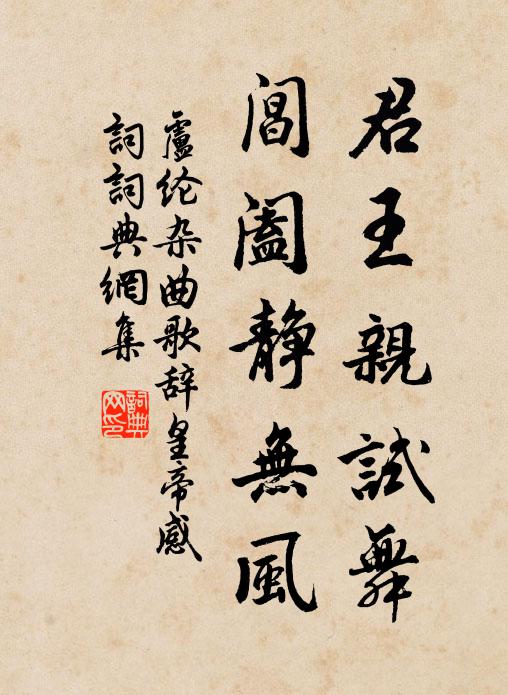 君王親試舞
閶闔静無風
盧纶杂曲歌辞皇帝感
詞詞典網集
詞典网印